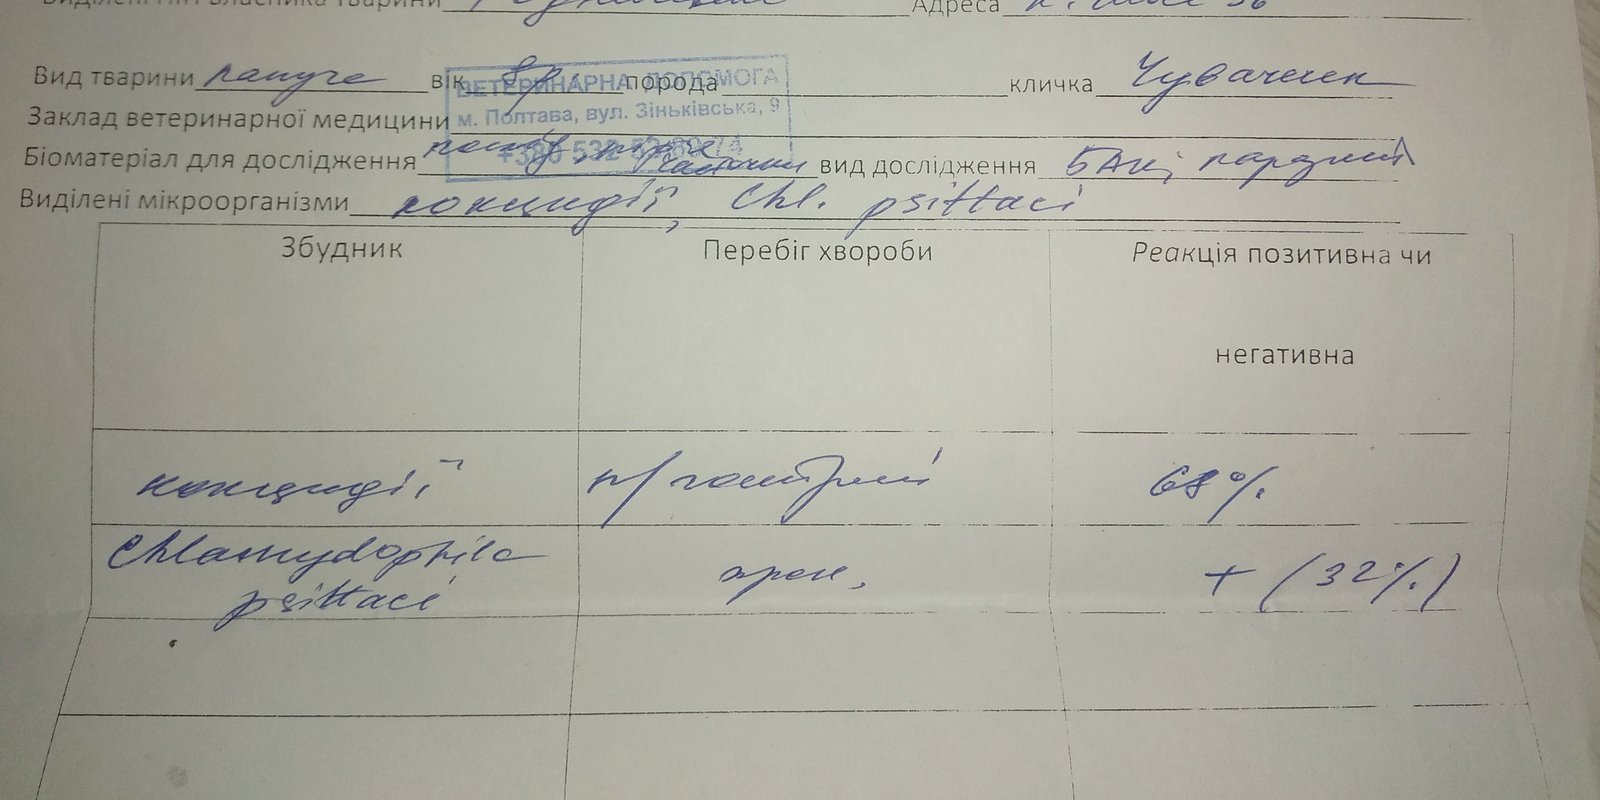 Виділені ПІП власника тварини Адреса
Вид тварини папуга вік 8р. порода кличка Чувачек
ВЕТЕРИНАРНА ДОПОМОГА
м. Полтава, вул. Зіньківська, 9
Заклад ветеринарної медицини
Біоматеріал для дослідження вид дослідження
Виділені мікроорганізми кокцидії, Chl. psittaci
Збудник Перебіг хвороби Реакція позитивна чи
негативна
кокцидії п/гострий 68%
Chlamydophila
psittaci хрон. + (32%)